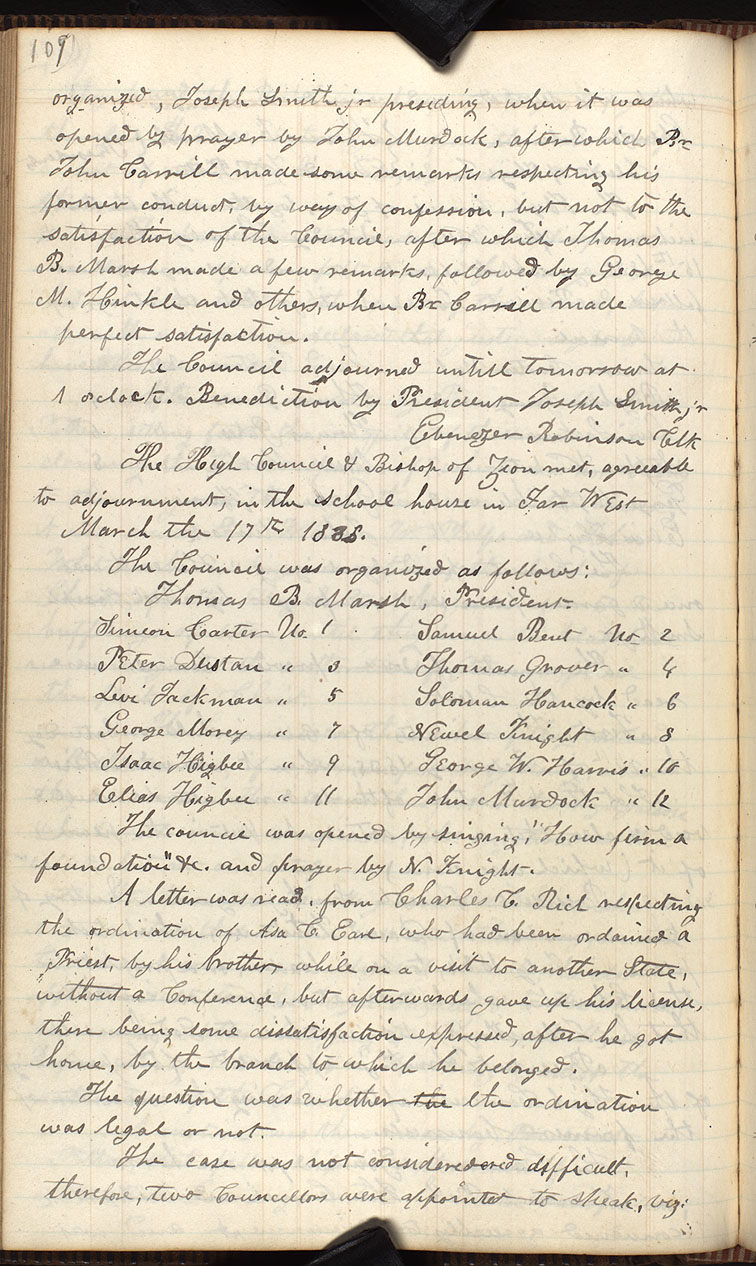 109
organized, Joseph Smith jr presiding, when it was
opened by prayer by John Murdock, after which Br
John Carrill made some remarks respecting his
former conduct, by way of confession, but not to the
satisfaction of the Council, after which Thomas
B. Marsh made a few remarks, followed by George
M. Hinkle and others, when Br Carrill made
perfect satisfaction.
The Council adjourned untill tomorrow at
1 oclock. Benediction by President Joseph Smith, jr
Ebenezer Robinson Clk
The High Council & Bishop of Zion met, agreeable
to adjournment, in the school house in Far West
March the 17th 1838.
The Council was organized as follows:
Thomas B. Marsh, President.
Simeon Carter No. 1 Samuel Bent No 2
Peter Dustan " 3 Thomas Grover " 4
Levi Jackman " 5 Soloman Hancock " 6
George Morey " 7 Newel Knight " 8
Isaac Higbee " 9 George W. Harris " 10
Elias Higbee " 11 John Murdock " 12
The council was opened by singing, "How firm a
foundation" &c. and prayer by N. Knight.
A letter was read, from Charles C. Rich respecting
the ordination of Asa C. Earl, who had been ordained a
Priest, by his brother, while on a visit to another State,
without a Conference, but afterwards gave up his license,
there being some dissatisfaction expressed, after he got
home, by the branch to which he belonged.
The question was whether the the ordination
was legal or not.
The case was not consideredered difficult,
therefore, two Councillors were appointed to speak, viz: